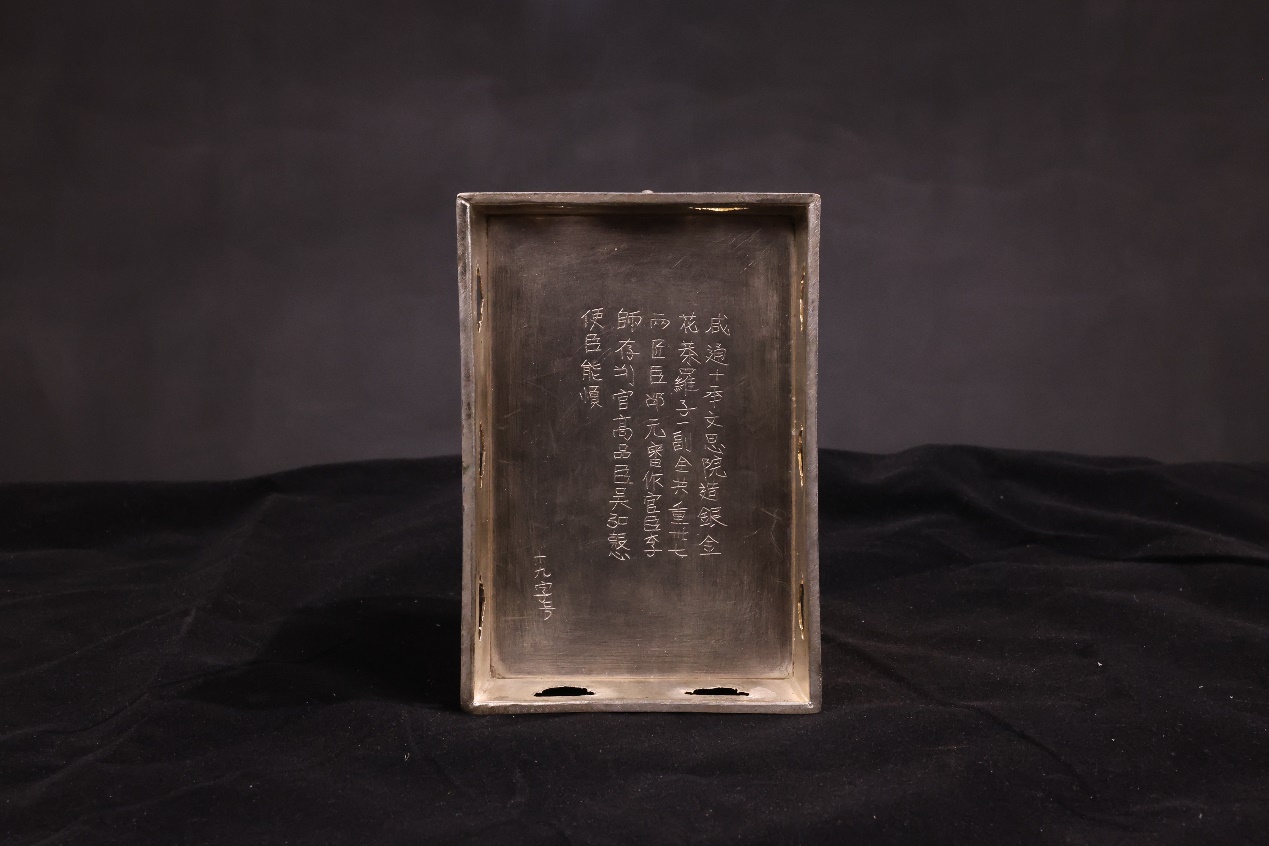 咸通十年文思院造銀金
花茶羅子一副全共重卅七
兩匠臣邵元審作官臣李
師存判官高品臣吳弘慤
使臣能順
十九字号